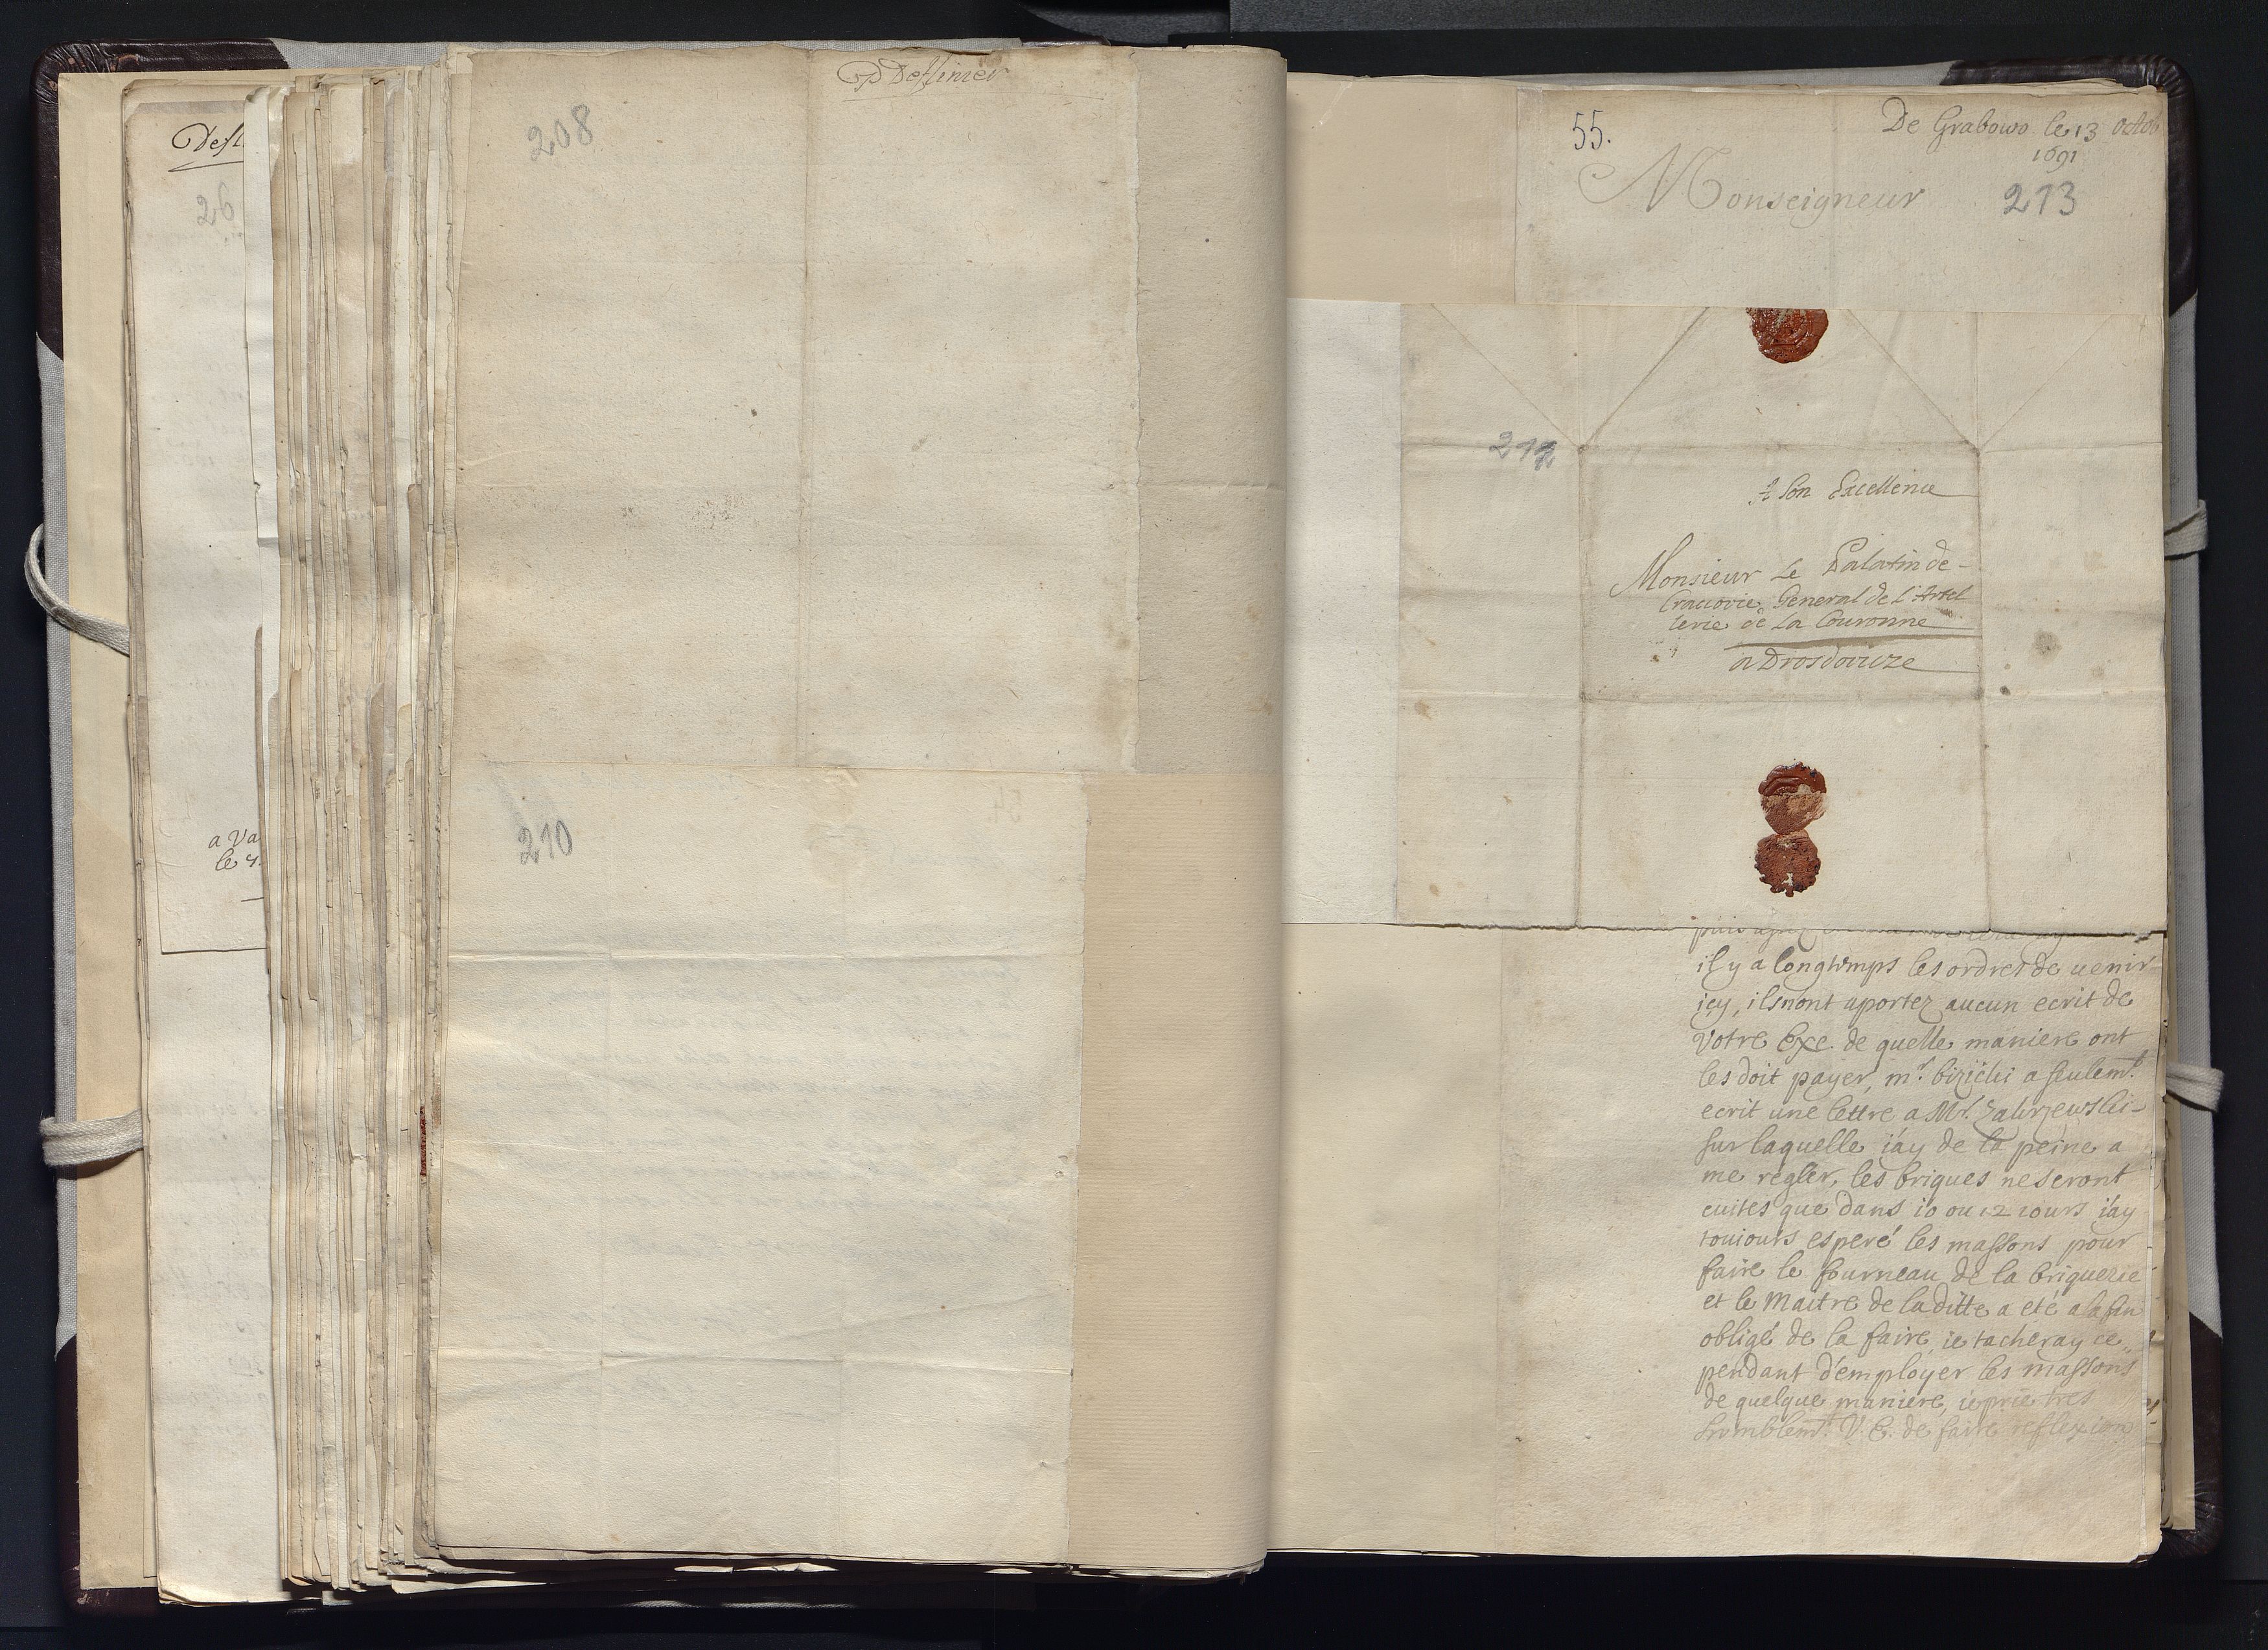 Desti
26
a Va
le 4.
P Destinier
208
210
55.
De Grabowo le 13 Octob
1691
Monseigneur
213
212
A Son Excellence
Monsieur Le Palatin de -
Cracovie, General de L'Artel
lerie de La Couronne
a Drosdovize
il y a longtemps les ordres de uenir
icy, ils nont aportez aucun ecrit de
Votre Exe. de quelle maniere ont
les doit payer, mr. bizicki a seulemt.
ecrit une lettre a Mr. Zakrzewski -
sur laquelle i'ay de la peine a
me regler, les briques ne seront
cuites que dans 10 ou 12 iours i'ay
touiours esperé les massons pour
faire le fourneau de la briquerie
et le Maitre de la ditte a eté a la fin
obligé de la faire, ie tacheray ce„
pendant d'employer les massons
de quelque maniere, ie prie tres
humblemt. V. E. de faire reflexion